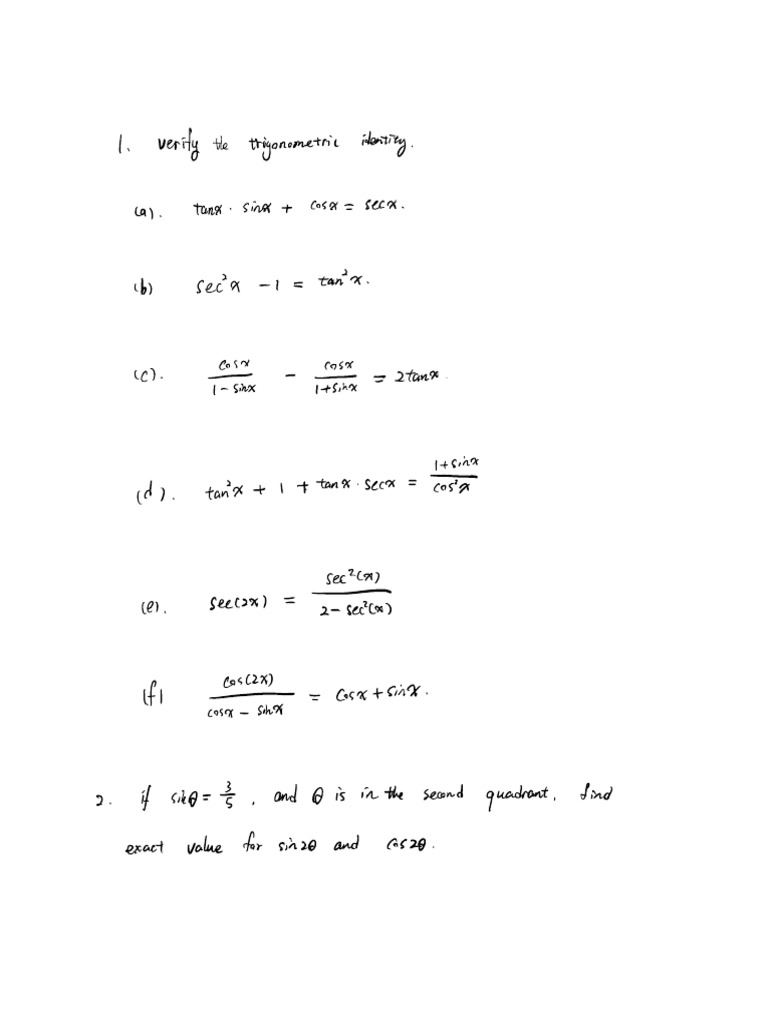 1. verify the trigonometric identity.
(a). tanx · sinx + cosx = secx.
(b) sec²x - 1 = tan²x.
(c). cosx/(1 - sinx) - cosx/(1 + sinx) = 2tanx.
(d). tan²x + 1 + tanx · secx = (1 + sinx)/cos²x
(e). sec(2x) = sec²(x)/(2 - sec²(x))
(f) cos(2x)/(cosx - sinx) = cosx + sinx.
2. if sinθ = 3/5, and θ is in the second quadrant, find
exact value for sin2θ and cos2θ.